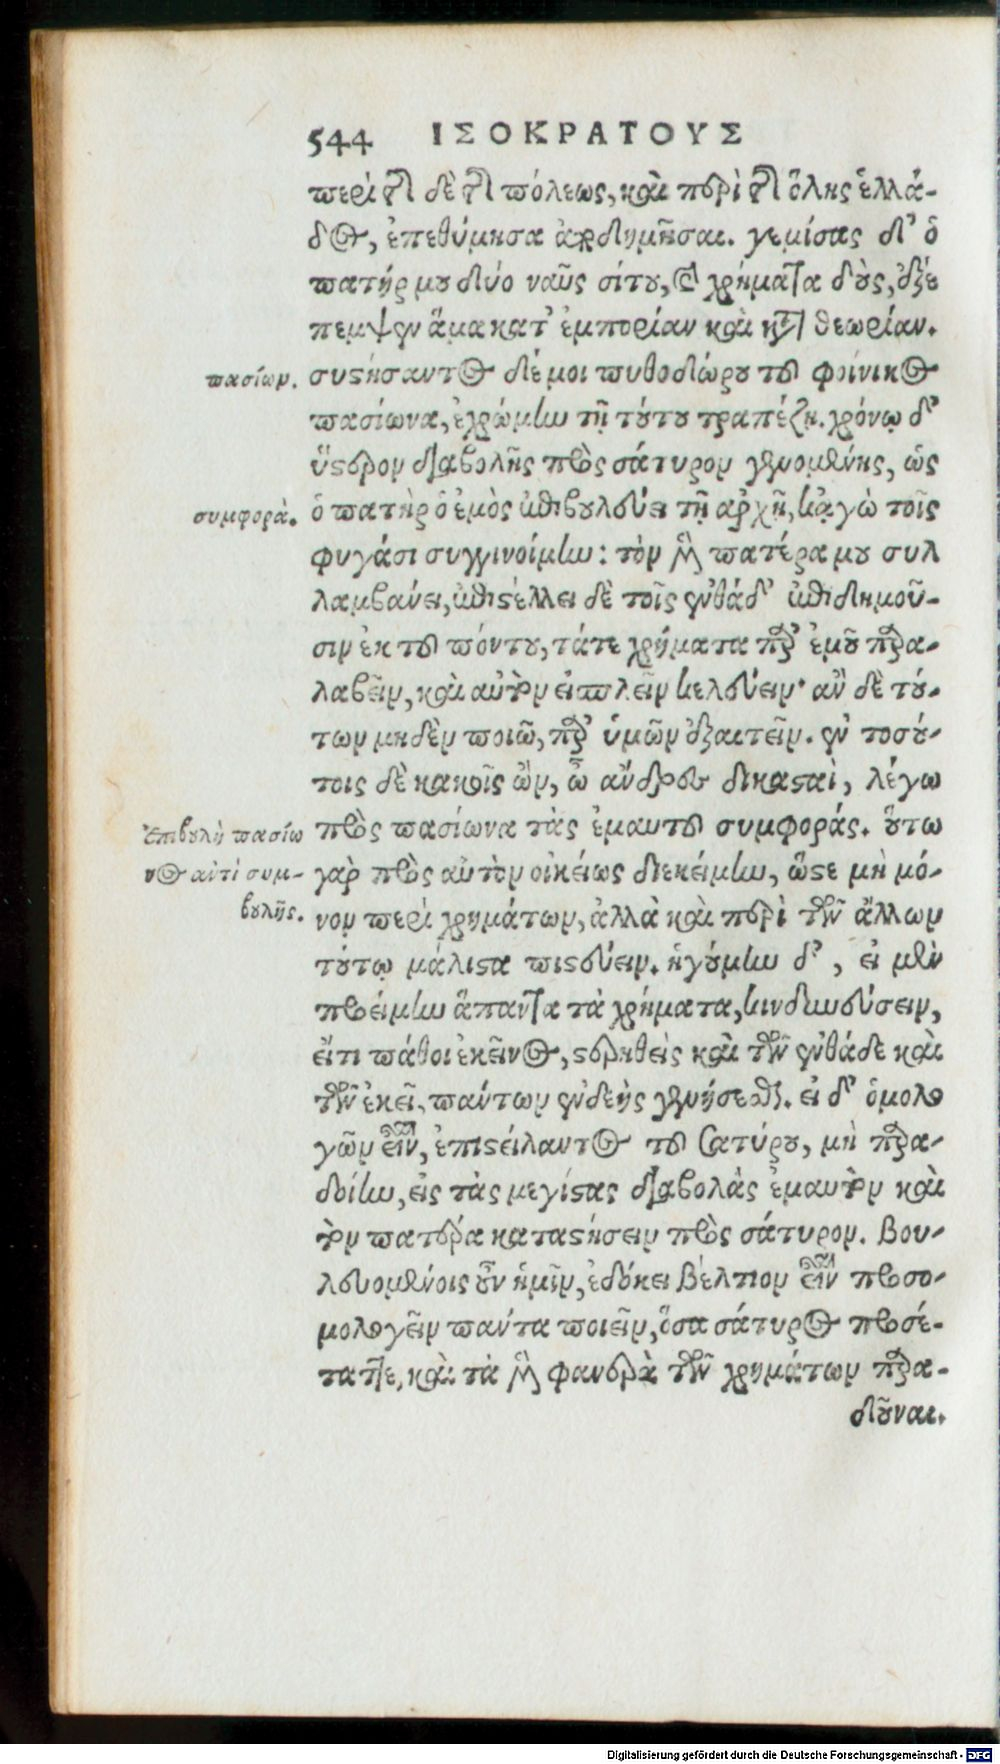 544 ΙΣΟΚΡΑΤΟΥΣ
περὶ τῆς δὲ τῆς πόλεως, καὶ περὶ τῆς ὅλης ἑλλά-
δος, ἐπεθύμησα ἀποδημῆσαι. γεμίσας δ' ὁ
πατήρ μου δύο ναῦς σίτου, καὶ χρήματα δοὺς, ἐξέ
πεμψεν ἅμα κατ' ἐμπορίαν καὶ κατὰ θεωρίαν.
πασίων.
συστήσαντος δέ μοι πυθοδώρου τοῦ φοίνικος
πασίωνα, ἐχρώμην τῇ τούτου τραπέζῃ. χρόνῳ δ'
ὕστερον διαβολῆς πρὸς σάτυρον γενομένης, ὡς
συμφορὰ.
ὁ πατὴρ ὁ ἐμὸς ἐπιβουλεύει τῇ ἀρχῇ, κἀγὼ τοῖς
φυγάσι συγγινοίμην: τὸν μὲν πατέρα μου συλ
λαμβάνει, ἐπιστέλλει δὲ τοῖς ἐνθάδ' ἐπιδημοῦ-
σιν ἐκ τοῦ πόντου, τάτε χρήματα παρ' ἐμοῦ παρα-
λαβεῖν, καὶ αὐτὸν εἰσπλεῖν κελεύειν· ἂν δὲ τού-
των μηδὲν ποιῶ, παρ' ὑμῶν ἐξαιτεῖν. ἐν τοσού-
τοις δὲ κακοῖς ὢν, ὦ ἄνδρες δικασταὶ, λέγω
Ἐπιβουλὴ πασίω
νος ἀντὶ συμ-
βουλῆς.
πρὸς πασίωνα τὰς ἐμαυτοῦ συμφοράς. οὕτω
γὰρ πρὸς αὐτὸν οἰκείως διεκείμην, ὥστε μὴ μό-
νον περὶ χρημάτων, ἀλλὰ καὶ περὶ τῶν ἄλλων
τούτῳ μάλιστα πιστεύειν. ἡγούμην δ', εἰ μὲν
προείμην ἅπαντα τὰ χρήματα, κινδυνεύσειν,
εἴτι πάθοι ἐκεῖνος, στερηθεὶς καὶ τῶν ἐνθάδε καὶ
τῶν ἐκεῖ, πάντων ἐνδεὴς γενήσεσθαι. εἰ δ' ὁμολο
γῶν εἶναι, ἐπιστείλαντος τοῦ Σατύρου, μὴ παρα-
δοίην, εἰς τὰς μεγίστας διαβολὰς ἐμαυτὸν καὶ
τὸν πατέρα καταστήσειν πρὸς σάτυρον. Βου-
λευομένοις οὖν ἡμῖν, ἐδόκει βέλτιον εἶναι προσο-
μολογεῖν πάντα ποιεῖν, ὅσα σάτυρος προσέ-
ταττε, καὶ τὰ μὲν φανερὰ τῶν χρημάτων παρα-
δοῦναι.
Digitalisierung gefördert durch die Deutsche Forschungsgemeinschaft - DFG